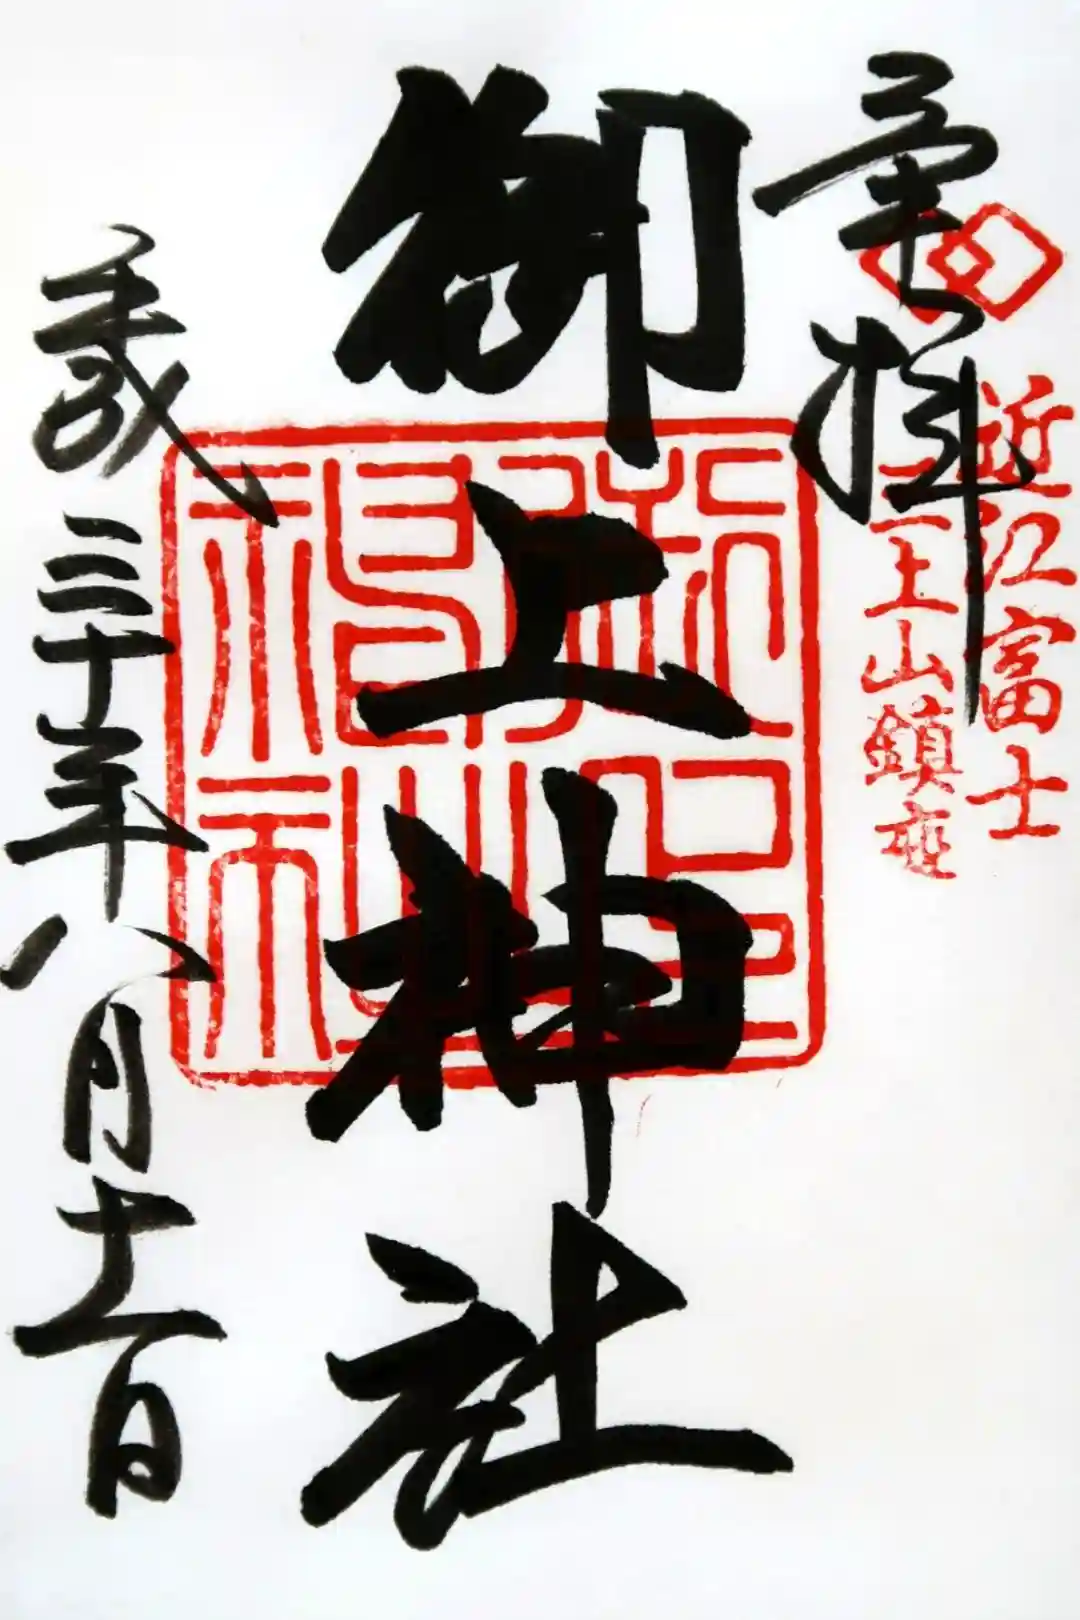 奉拝
近江富士
三上山鎮座
御上神社
平成三十年八月十一日